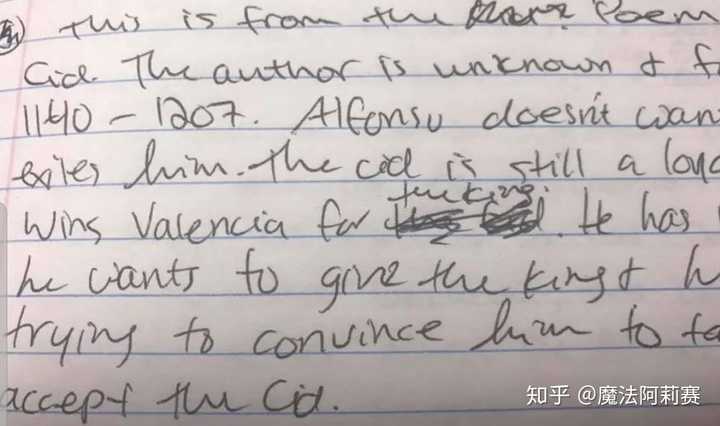 this is from the Poem
Cid. The author is unknown & f
1140 - 1207. Alfonso doesn't wan
exiles him. The cid is still a loya
the king.
Wins Valencia for. He has
he wants to give the king & h
trying to convince him to ta
accept the Cid.
知乎 @魔法阿莉赛